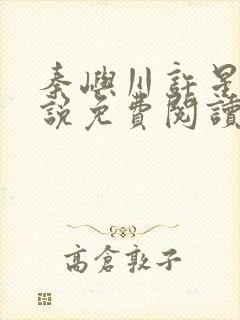 秦嶼川許是
說免費閱讀
高倉敦子